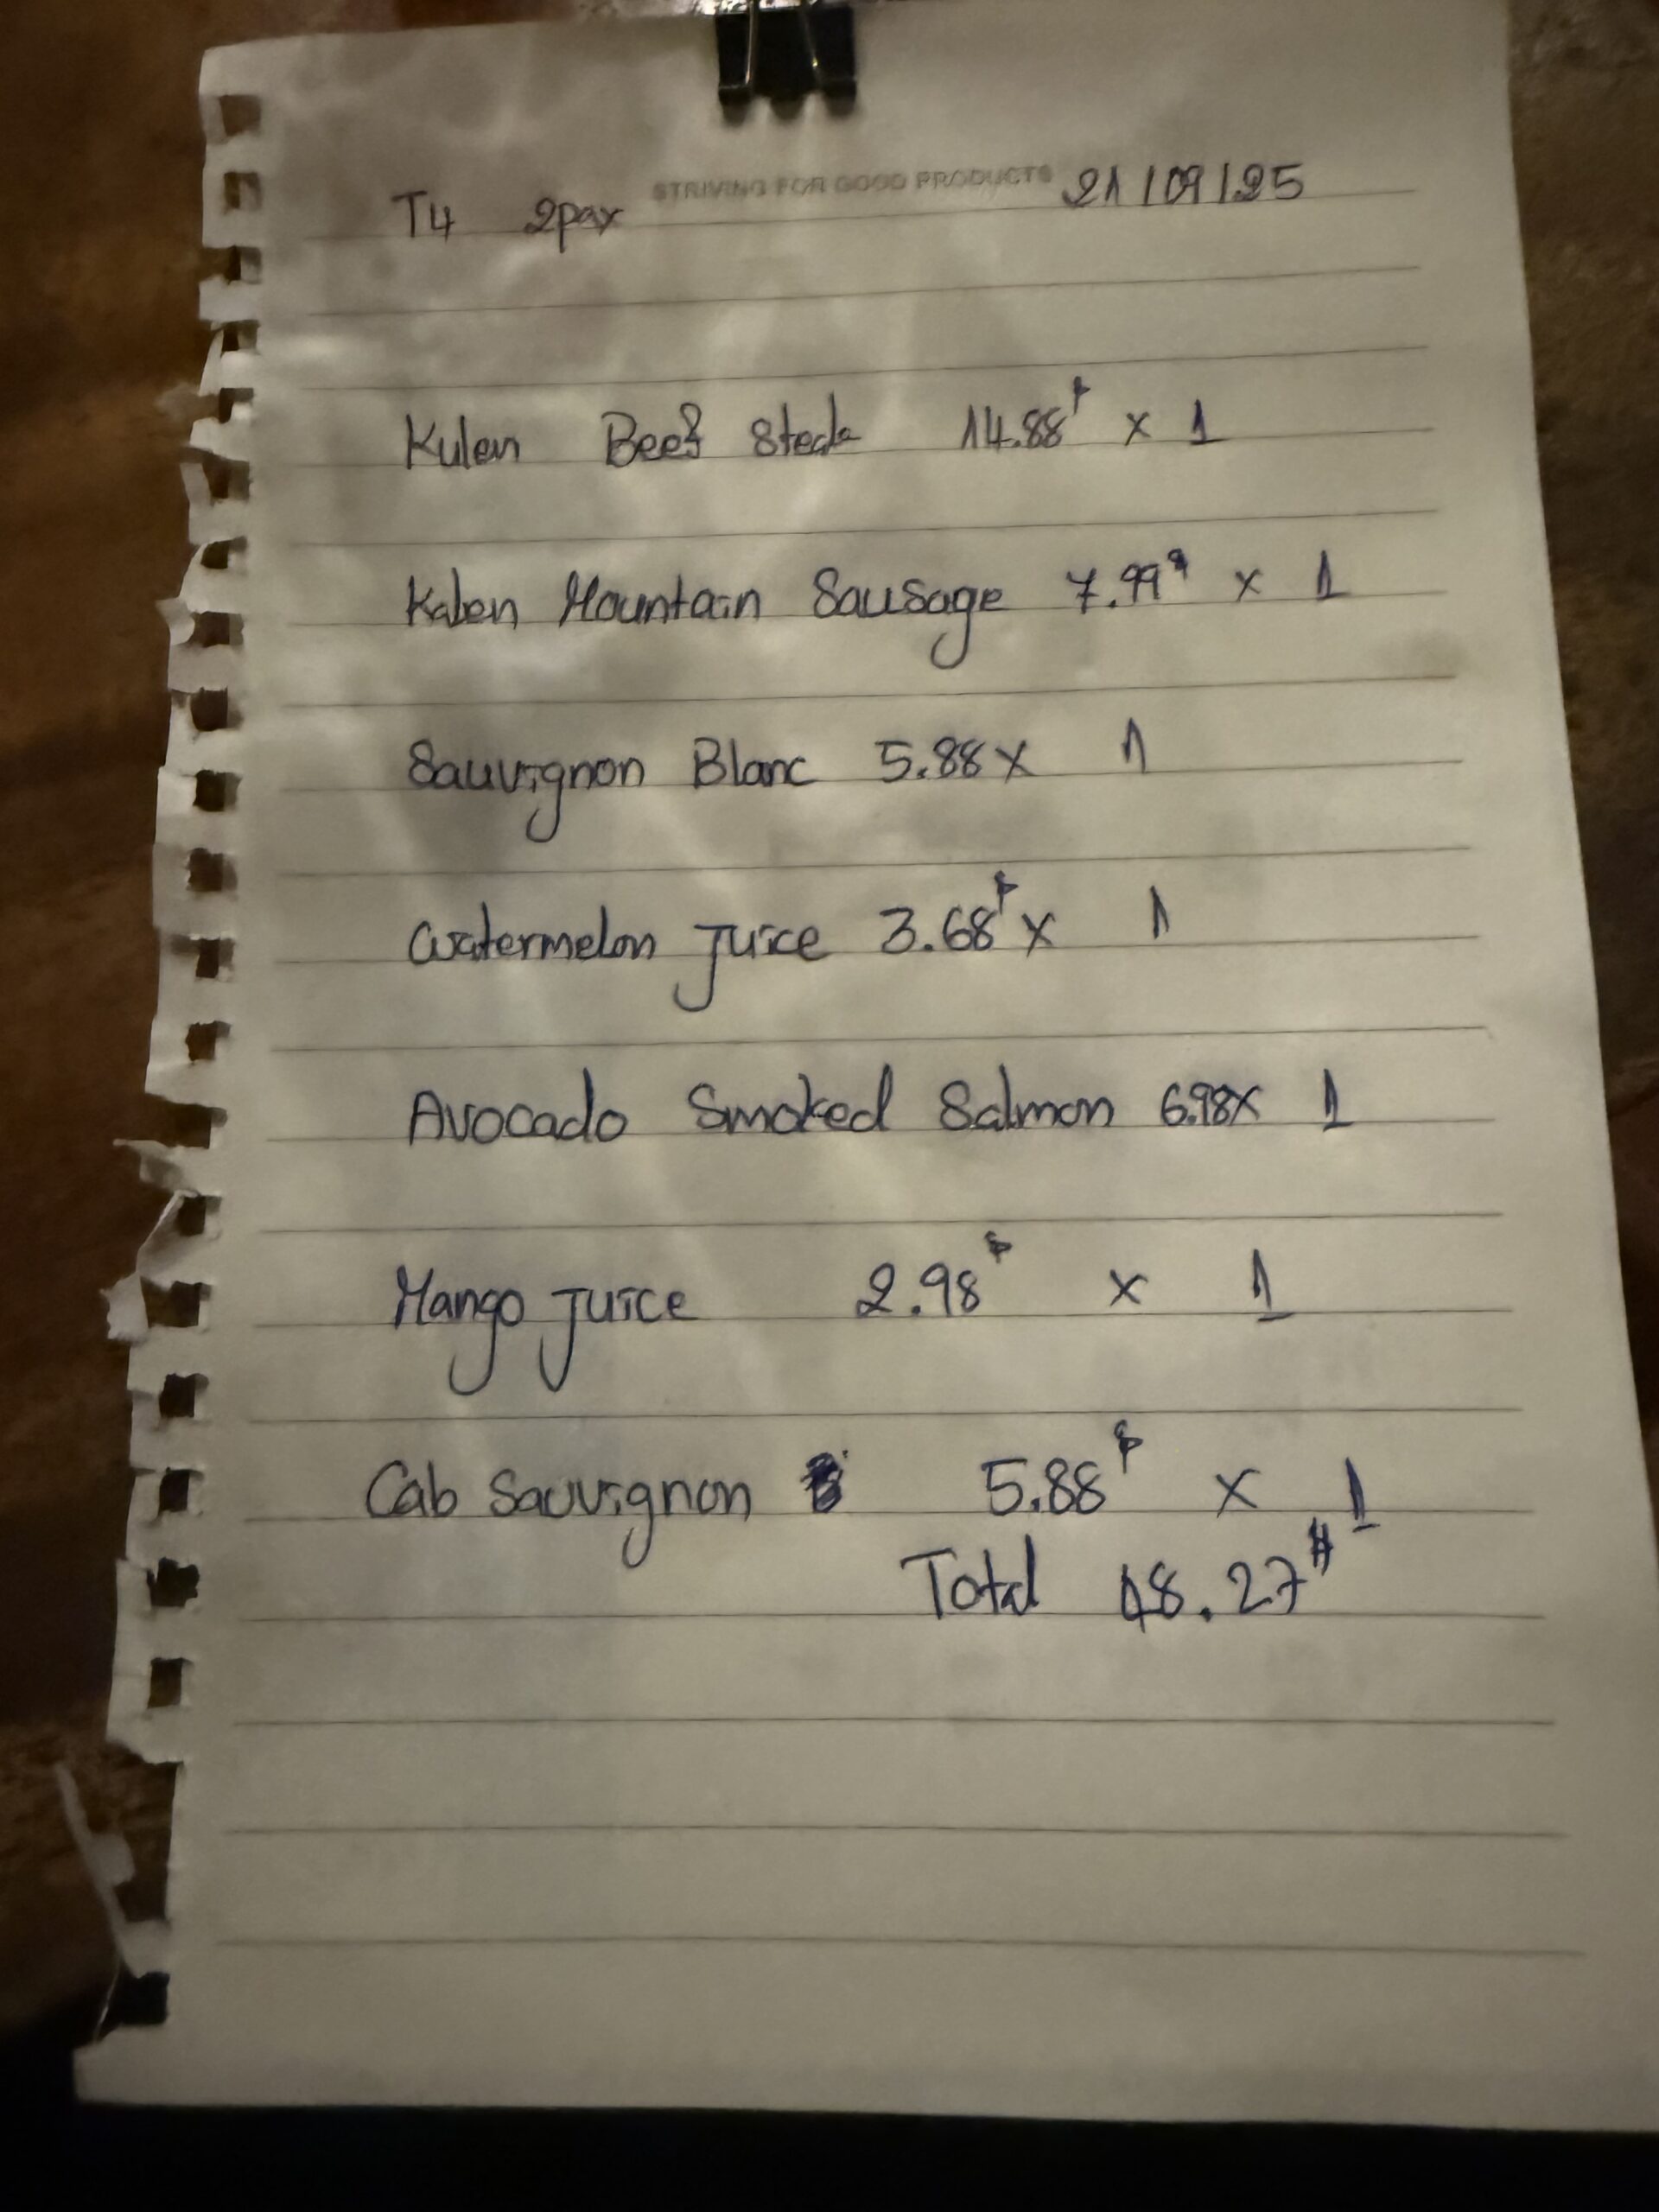 STRIVING FOR GOOD PRODUCTS
T4 2pax 21/09/25
Kulen Beef Steak 14.88$ x 1
Kulen Mountain Sausage 7.99$ x 1
Sauvignon Blanc 5.88 x 1
Watermelon Juice 3.68$ x 1
Avocado Smoked Salmon 6.98 x 1
Mango Juice 2.98$ x 1
Cab Sauvignon 5.88$ x 1
Total 48.27$